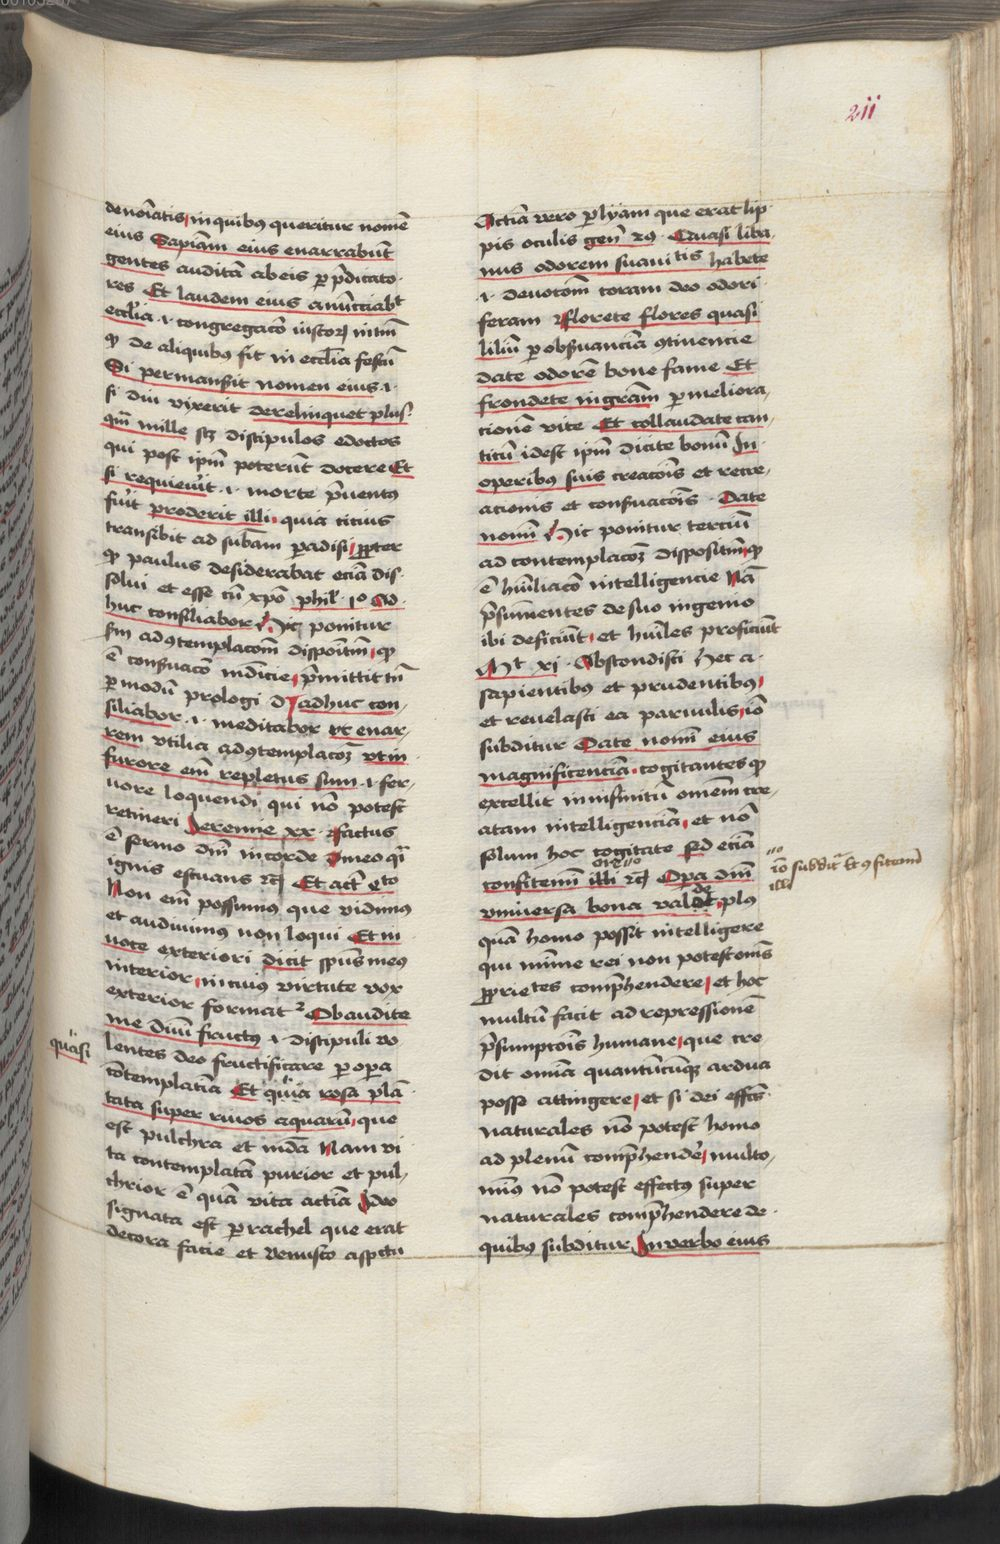 211
denoīatis in quibus queritur nomē
eius Sapiam eius enarrabūt
gentes auditā ab eis per p̄dicato
res Et laudem eius anūcciabt
eccl̄ia .i. congregacō iustorꝝ
qꝫ de aliquibus fit in eccl̄ia festū
Si permanserit nomen eius .i.
si diu vixerit derelinquet plus
qm̄ mille scꝫ discipulos edoctos
qui post ipm̄ poterūt docere Et
si requieuit .i. morte p̄uentus
fuīt proderit illi quia cicius
transibit ad sūbam paradisi ꝓpter
qꝫ paulus desiderabat eciā dis
solui et esse cū xpō phil' 1o Ad
huc consiliabor Hic ponitur
sm̄ ad ꝯtemplacom̄ dispoitm̄ qꝫ
ē consuacō iudicie p̄mittit tn̄
per modū prologi d adhuc con
siliabor .i. meditabor vt enar
rem vtilia ad ꝯtemplacoꝫ vt in
furore em̄ repletus sum .i. fer
uore loquendi qui nō potest
retineri Jeremie xx factus
ē sermo dm̄ in corde meo qī
ignis estuans rc̄ Et act' qto
Non em̄ possumus que vidimus
et audiuimus non loqui Et in
uoce exteriori dicit spūs meus
interior in cuius virtute vox
exterior format Obaudite
me diuī fructus .i. discipuli vo
lentes deo fructificare per opera
quasi
cōtemplatīa Et quia rosa plā
tata super riuos aquarū que
est pulchra et mūda Nam vi
ta contemplatīa purior et pul
chrior ē quā vita actīa Ideo
signata est per rachel que erat
decora facie et venusto aspectu
Actiā vero per lyam que erat lip
pis oculis gen̄ 29 Quasi liba
nus odorem suauitatis habete
.i. deuotom̄ coram deo odori
feram Florete flores quasi
liliū per obseruanciā ꝯtinencie
date odorē bone fame Et
frondete in grām per meliora
cionē vite Et collaudate can
ticū idest ipm̄ dicite bonū In
operibus suis creacōis et recre
acionis et conseruacōis Date
nomī Hic ponitur terciū
ad contemplacoꝫ dispositiuū qꝫ
ē hūiliacō intelligencie Nā
p̄sumentes de suo ingenio
ibi deficiūt et hūiles proficiūt
Mt xi Abscondisti hec a
sapientibus et prudentibus
et reuelasti ea paruulis iō
subditur Date nomī eius
magnificenciā cogitantes qꝫ
excellit in infinitū omēm cre
atam intelligenciā et nō
solum hoc cogitate sed eciā
iō subditr Et ꝯfitemī
illi
confitemī illi rc̄ Opera dm̄
vniuersa bona valde plus
quā homo possit intelligere
qui minime rei non potest om̄s
ꝓprietes comp̄hendere et hoc
multū facit ad repressionē
p̄sumptōis humane que cre
dit omīa quantūcūqꝫ ardua
posse attingere et si dei effc̄s
naturales nō potest homo
ad plenū comp̄hende' multo
mīus nō potest effectus super
naturales comp̄hendere de
quibus subditur In verbo eius